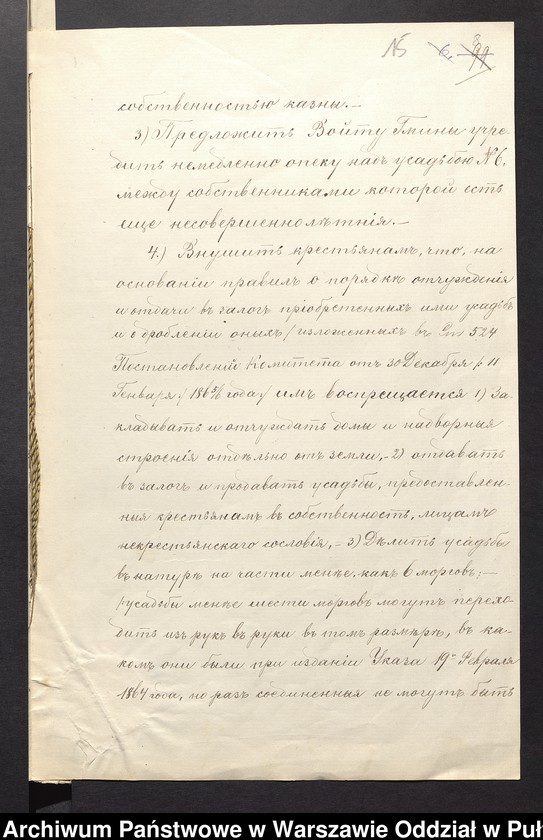 № 6, 99
собственностью казны.—
3) Предложить Войту Гмины учре-
дить немедленно опеку надъ усадьбою № 6,
между собственниками которой есть
еще несовершеннолѣтнія.—
4.) Внушить крестьянамъ, что, на
основаніи правилъ о порядкѣ отчужденія
и отдачи въ залогъ пріобретенныхъ ими усадьбъ
и о дробленіи оныхъ /изложенныхъ въ Ст 524
Постановленій Комитета отъ 30 Декабря / 11
Генваря / 1865/6 года/ имъ воспрещается 1) За-
кладывать и отчуждать домы и надворныя
строенія отдѣльно отъ земли,- 2) отдавать
въ залогъ и продавать усадьбы, предоставлен-
ныя крестьянамъ въ собственность, лицамъ
некрестьянскаго сословія,- 3) Дѣлить усадьбы
въ натурѣ на части менѣе, какъ 6 морговъ;—
/усадьбы менѣе шести морговъ могутъ перехо-
дить изъ рукъ въ руки въ томъ размѣрѣ, въ ка-
комъ они были при изданіи Указа 19го Февраля
1864 года, но разъ соединенныя не могутъ быть
Archiwum Państwowe w Warszawie Oddział w Puł